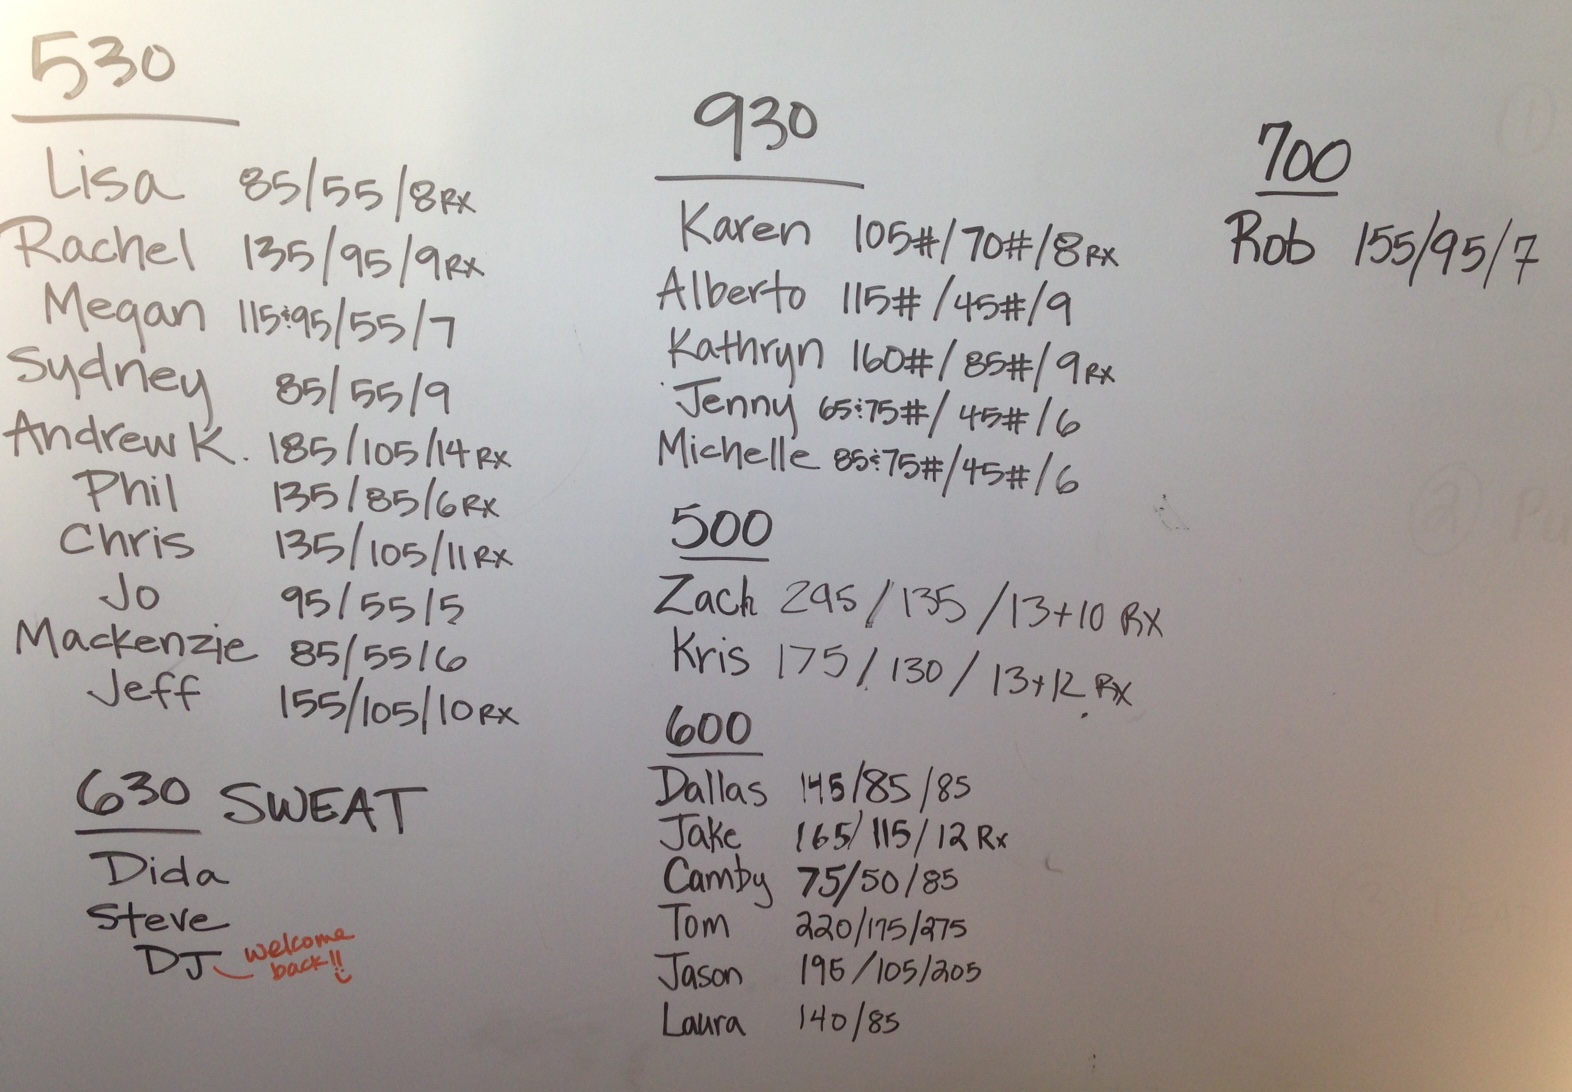 530
Lisa 85/55/8 RX
Rachel 135/95/9 RX
Megan 115&95/55/7
Sydney 85/55/9
Andrew K. 185/105/14 RX
Phil 135/85/6 RX
Chris 135/105/11 RX
Jo 95/55/5
Mackenzie 85/55/6
Jeff 155/105/10 RX
630 SWEAT
Dida
Steve
DJ welcome
back!!
930
Karen 105#/70#/8 RX
Alberto 115#/45#/9
Kathryn 160#/85#/9 RX
Jenny 65&75#/45#/6
Michelle 85&75#/45#/6
500
Zach 295/135/13+10 RX
Kris 175/130/13+12 RX
600
Dallas 145/85/85
Jake 165/115/12 Rx
Camby 75/50/85
Tom 220/175/275
Jason 195/105/205
Laura 140/85
700
Rob 155/95/7